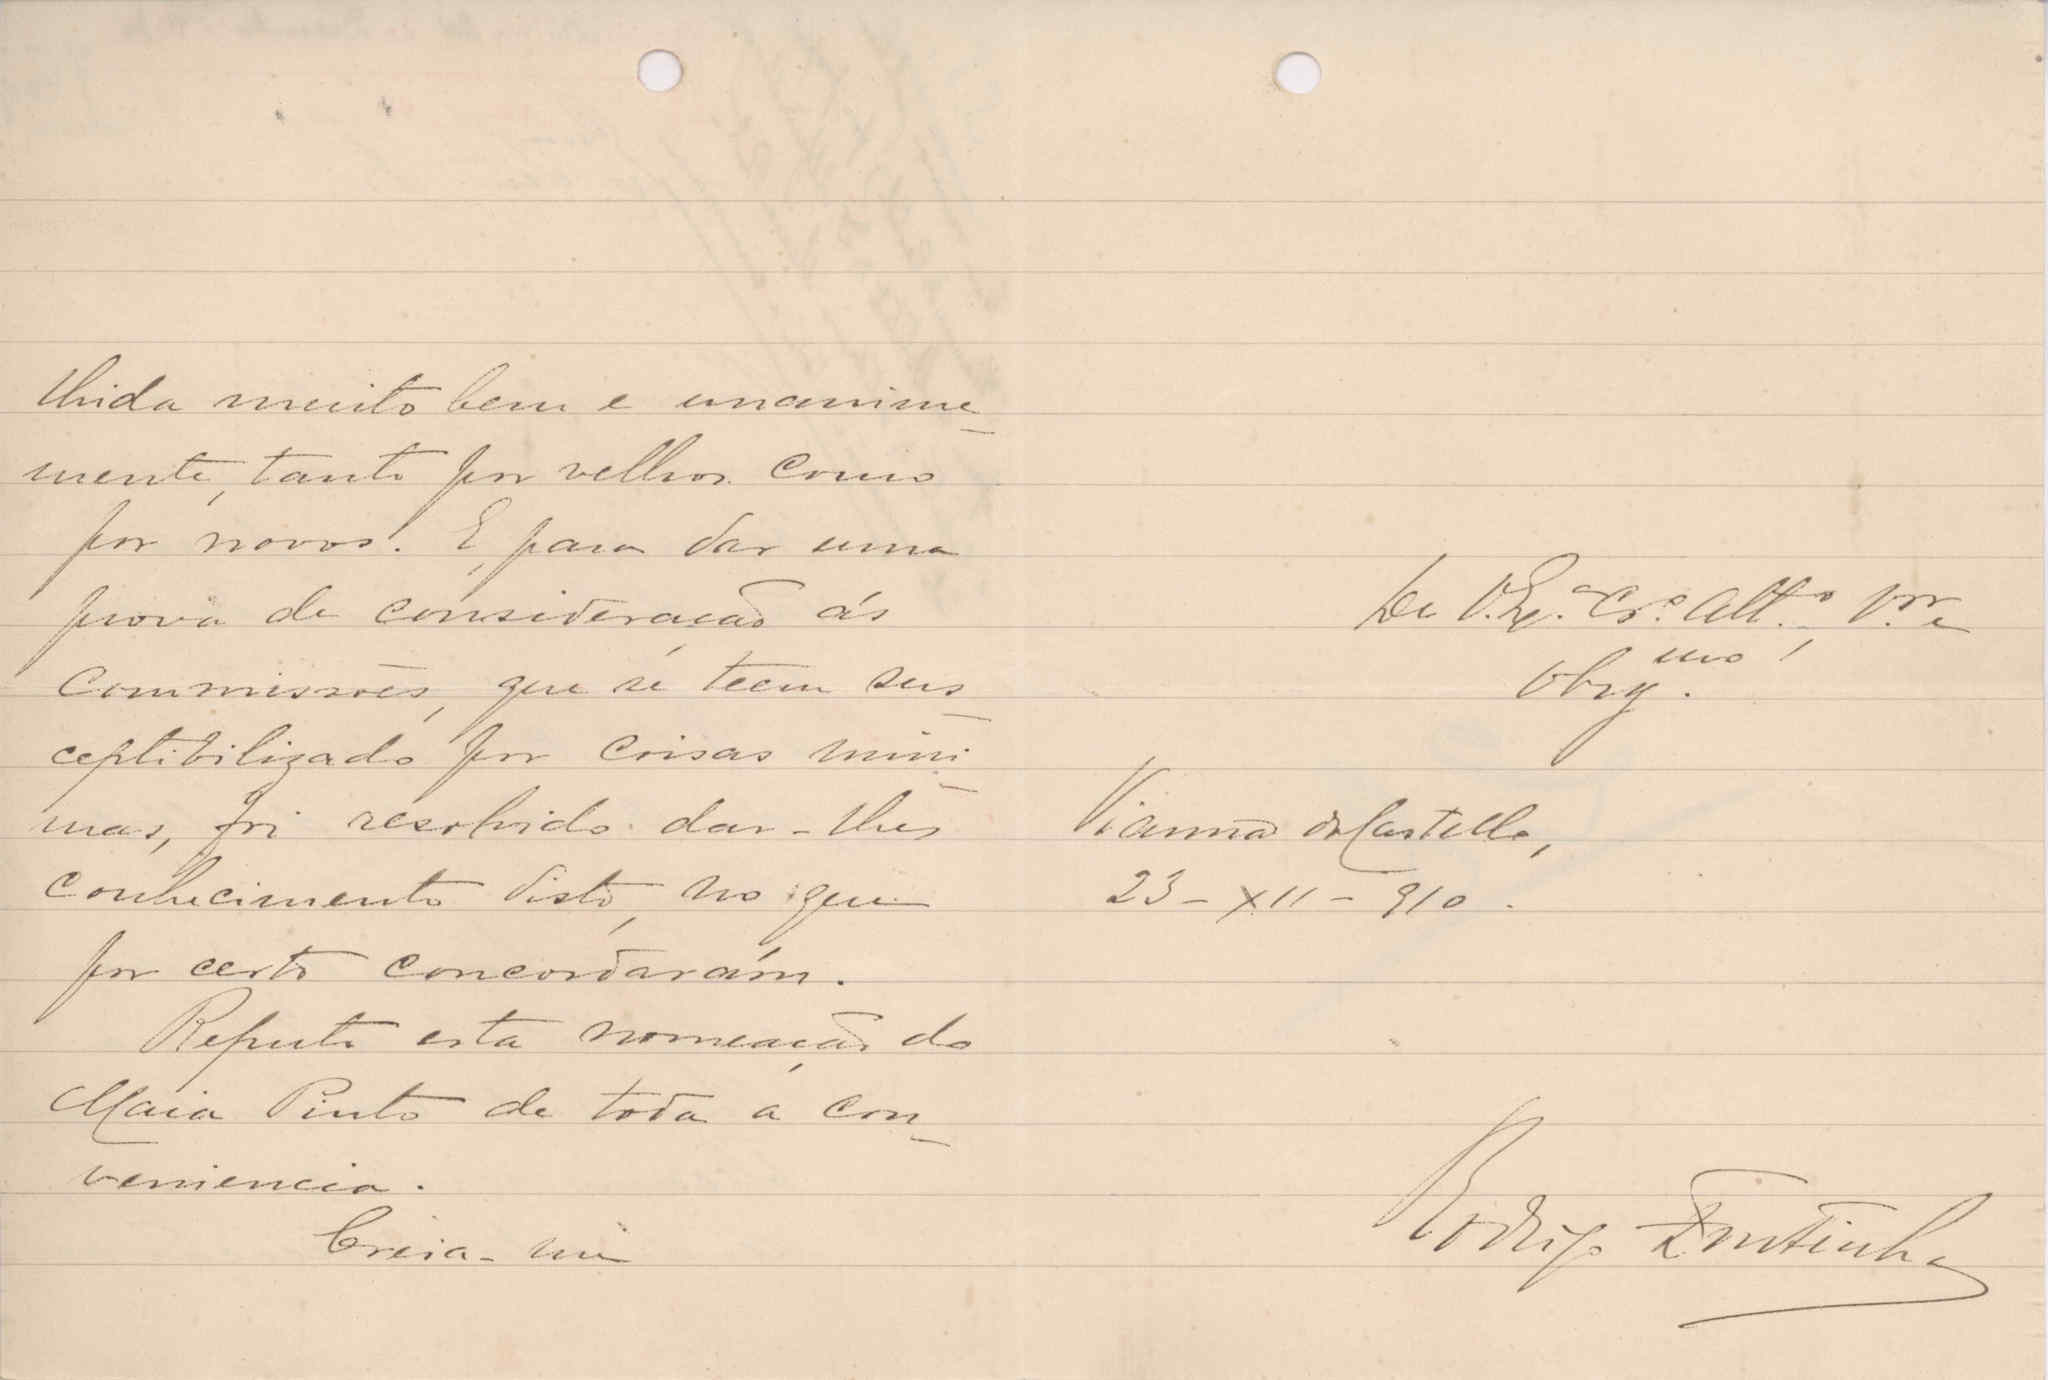 lhida muito bem e unanime-
mente, tanto por velhos como
por novos. E, para dar uma
prova de consideração ás
commissões, que se teem sus-
ceptibilizado por coisas mini-
mas, foi resolvido dar-lhes
conhecimento disto, no que
por certo concordarám.
Reputo esta nomeação do
Maia Pinto de toda a con-
veniencia.
Creia-me
De V. Ex.ª Cr.º Att.º, V.or e
Obrg.mo
Vianna do Castello,
23-XII-910.
Rodrigo Fontinha